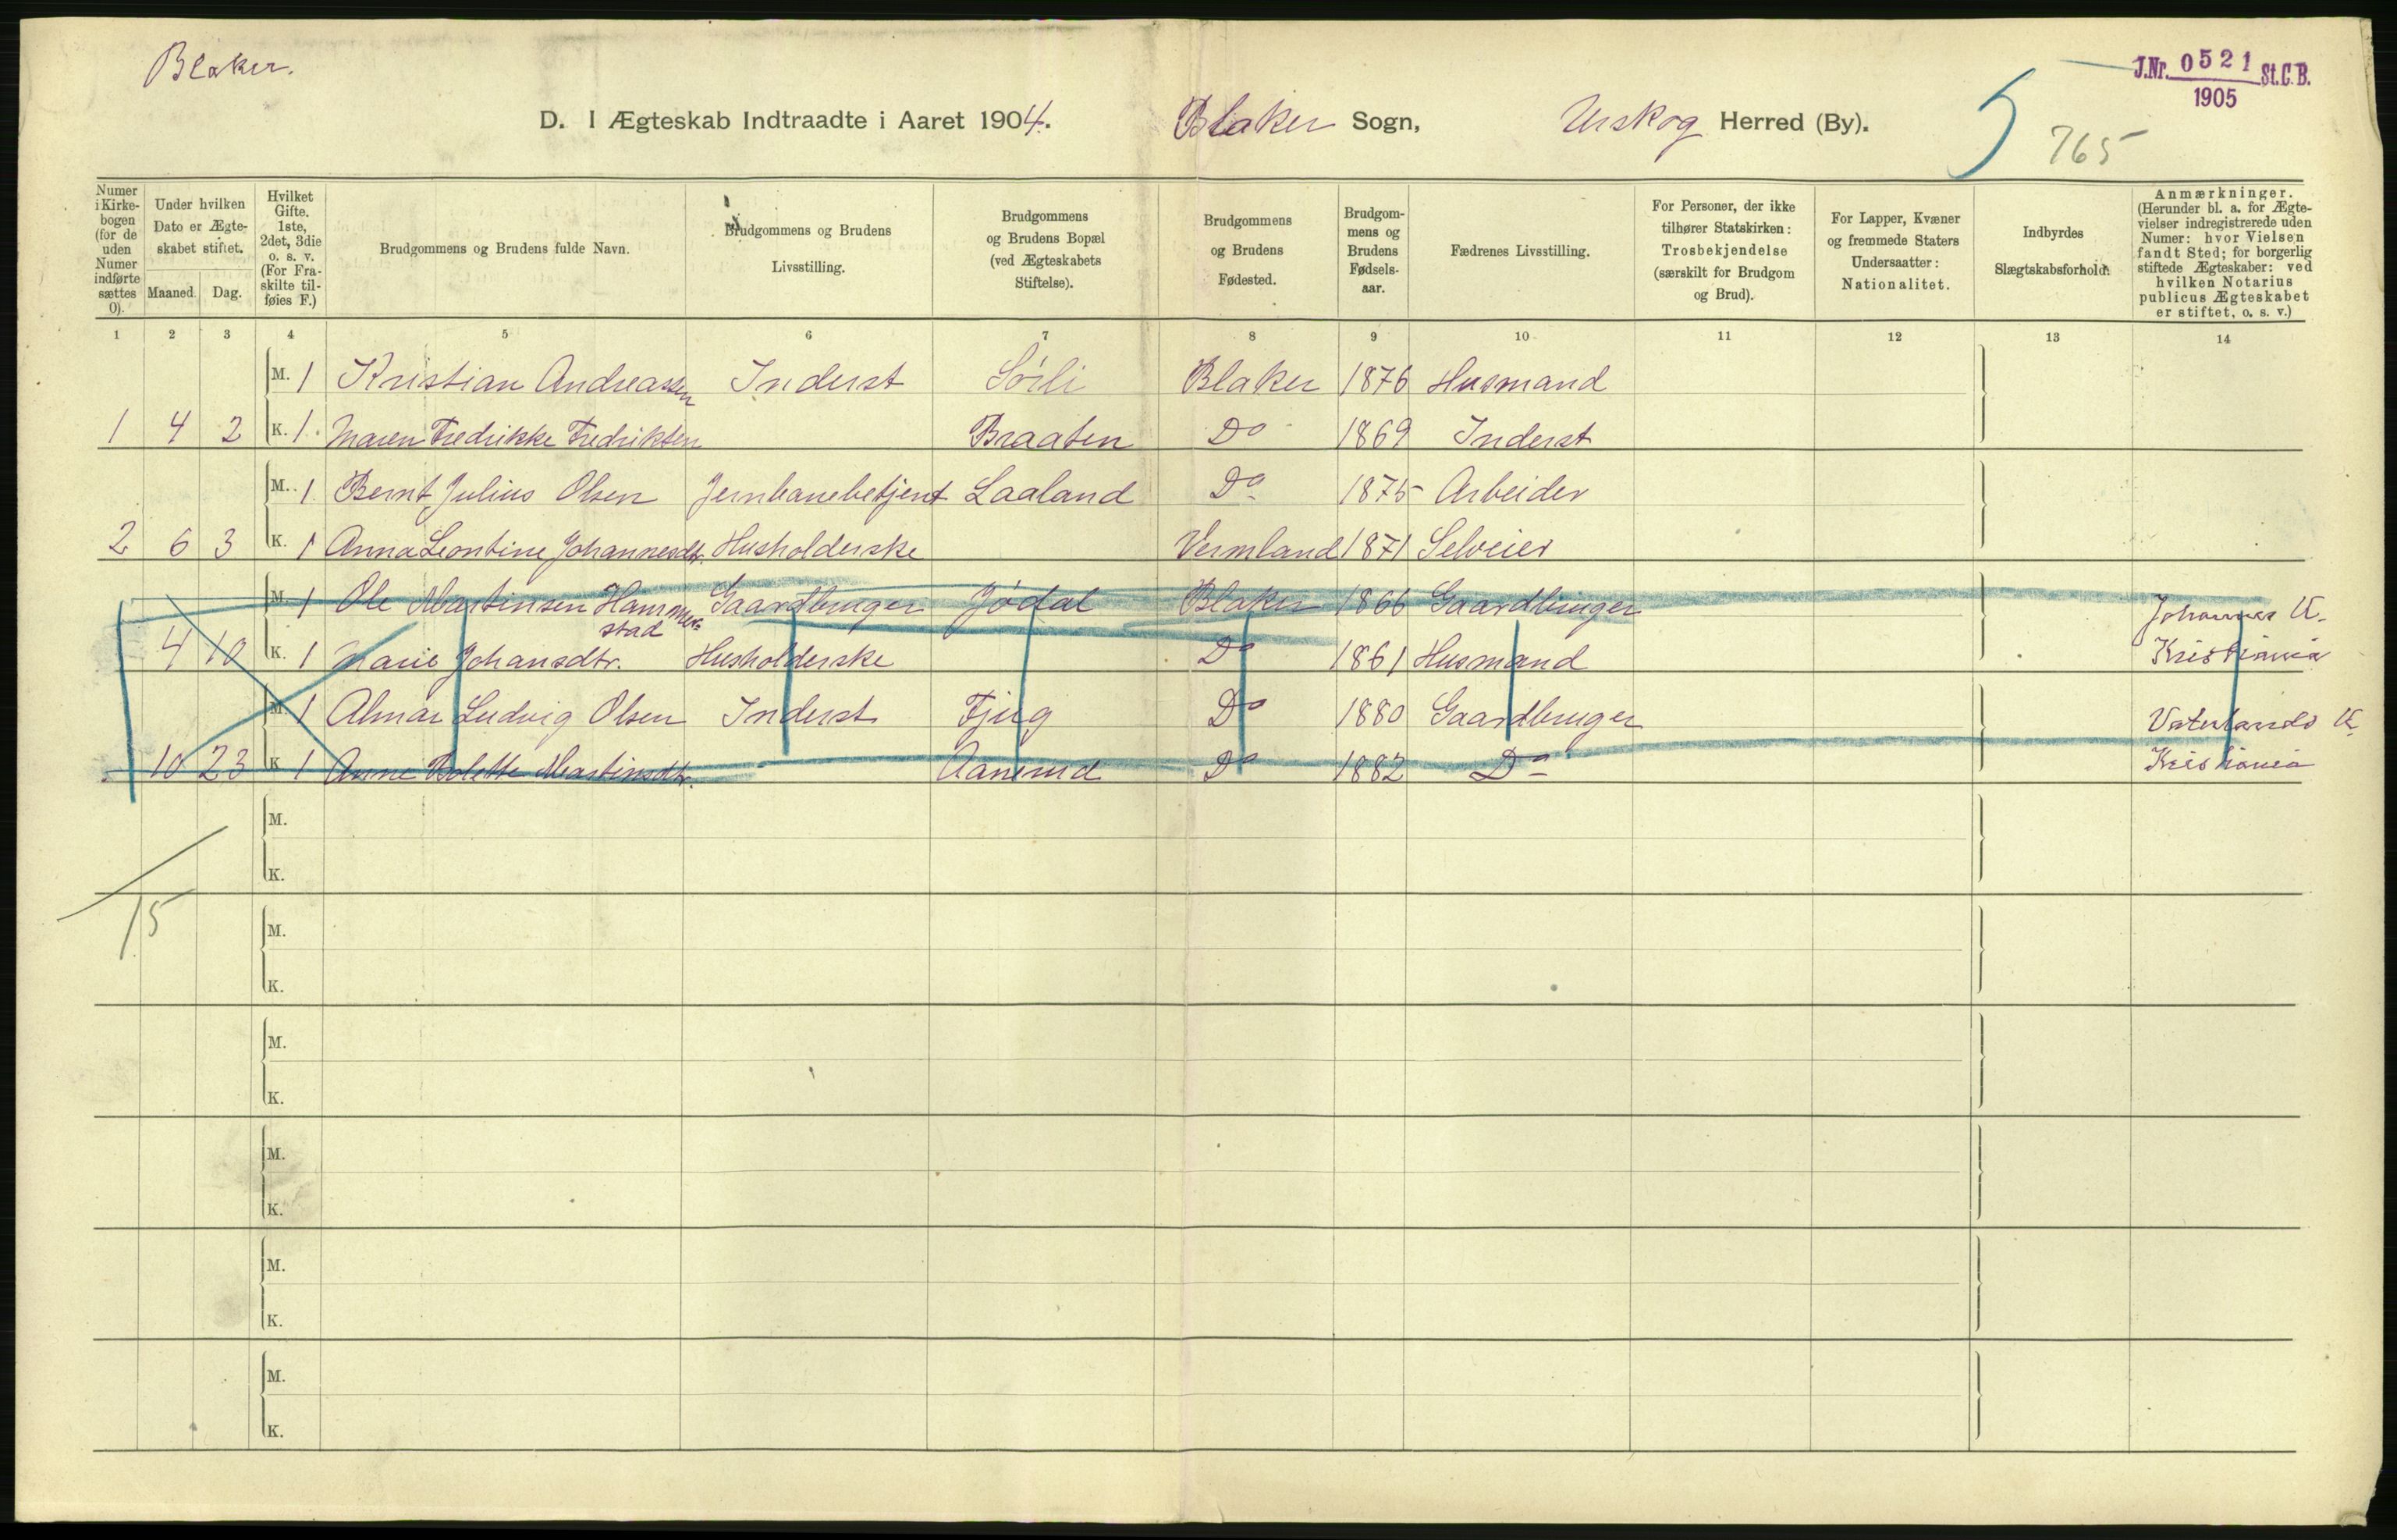 Blaker.
J.Nr. 0521 St.C.B.
1905
D. I Ægteskab Indtraadte i Aaret 1904. Blaker Sogn, Urskog Herred (By).
5
765
Numer i Kirkebogen (for de uden Numer indførte sættes 0).
Under hvilken Dato er Ægteskabet stiftet.
Maaned. Dag.
Hvilket Gifte. 1ste, 2det, 3die o. s. v. (For Fraskilte tilføies F.)
Brudgommens og Brudens fulde Navn.
Brudgommens og Brudens Livsstilling.
Brudgommens og Brudens Bopæl (ved Ægteskabets Stiftelse).
Brudgommens og Brudens Fødested.
Brudgommens og Brudens Fødselsaar.
Fædrenes Livsstilling.
For Personer, der ikke tilhører Statskirken: Trosbekjendelse (særskilt for Brudgom og Brud).
For Lapper, Kvæner og fremmede Staters Undersaatter: Nationalitet.
Indbyrdes Slægtskabsforhold.
Anmærkninger. (Herunder bl. a. for Ægtevielser indregistrerede uden Numer: hvor Vielsen fandt Sted; for borgerlig stiftede Ægteskaber: ved hvilken Notarius publicus Ægteskabet er stiftet, o. s. v.)
1 2 3 4 5 6 7 8 9 10 11 12 13 14
M. 1 Kristian Andreassen Inderst Sörli Blaker 1876 Husmand
1 4 2 K. 1. Maren Fredrikke Fredriksen Braaten Do 1869 Inderst
M. 1 Bernt Julius Olsen Jernbanebetjent Laaland Do 1875 Arbeider
2 6 3 K. 1 Anna Leontine Johannesdtr. Husholderske Vermland 1871 Selveier
M. 1 Ole Martinsen Hammerstad Gaardbruger Jödal Blaker 1866 Gaardbruger Johannes K.
4 10 K. 1 Marie Johansdtr. Husholderske Do 1861 Husmand Kristiania
M. 1 Almar Ludvig Olsen Inderst Fjug Do 1880 Gaardbruger Vaterlands K.
10 23 K 1 Anne Bolette Martinsdtr. Aanerud Do 1882 Do Kristiania
M.
K.
15
M.
K.
M.
K.
M.
K.
M.
K.
M.
K.